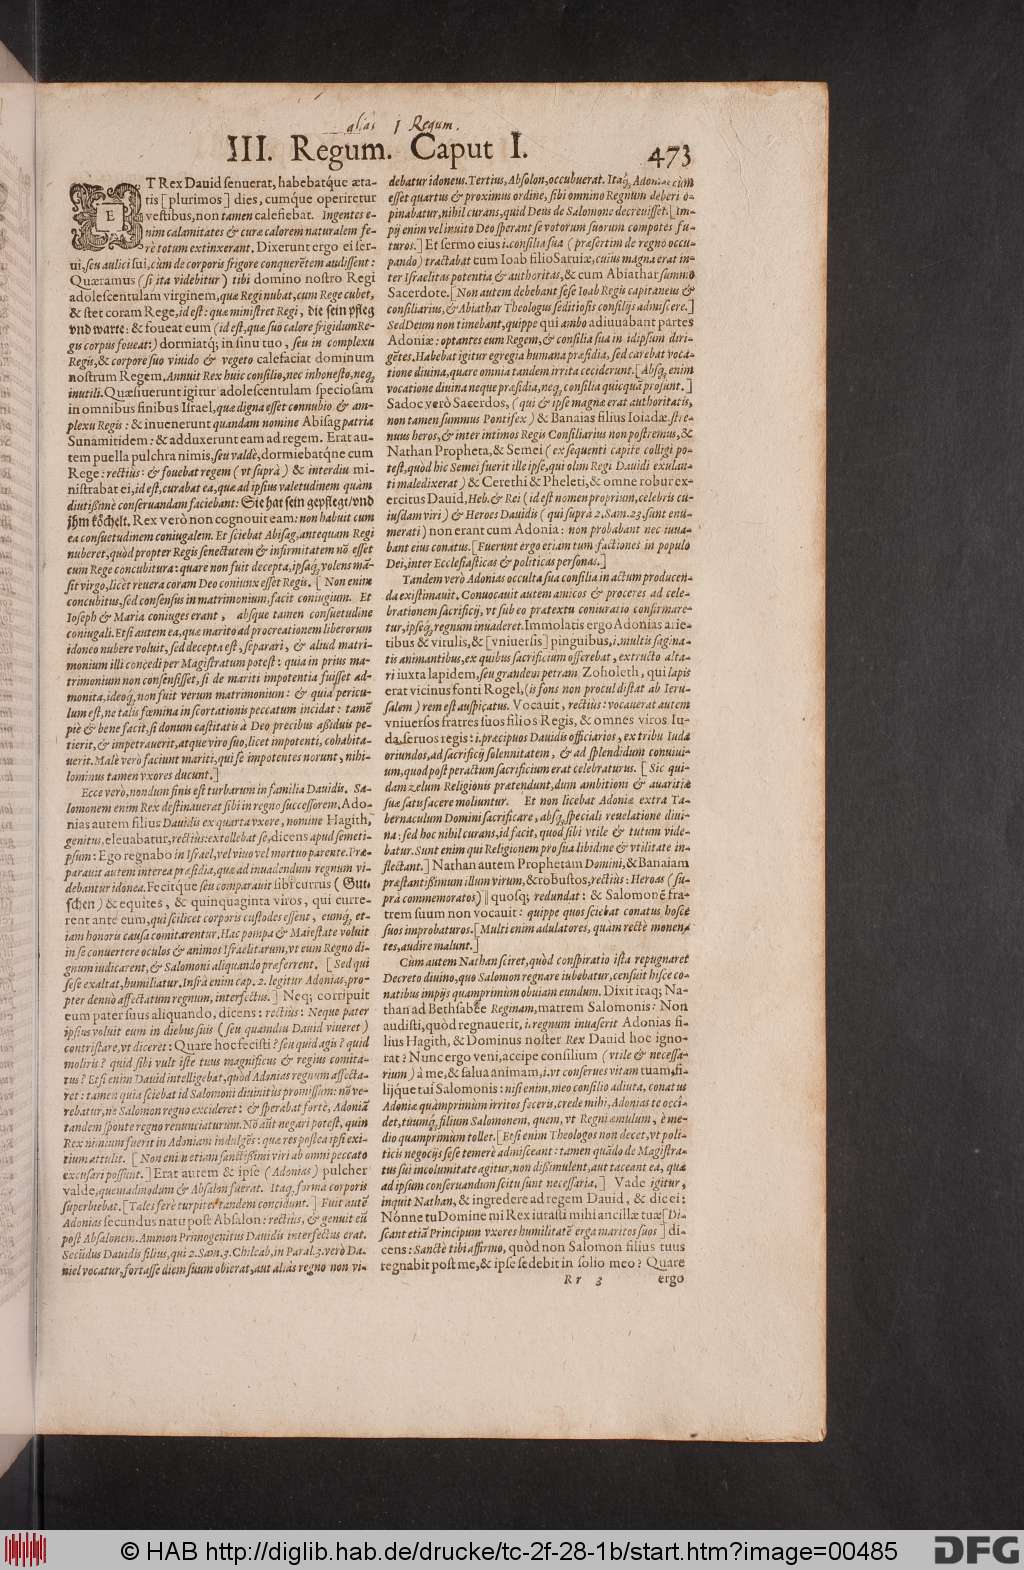 aliàs I Regum.
III. Regum. Caput I.
473
ET Rex Dauid senuerat, habebatq́ue æta-
tis [plurimos] dies, cumq́ue operiretur
vestibus, non tamen calefiebat. Ingentes e-
nim calamitates & curæ calorem naturalem fe-
rè totum extinxerant, Dixerunt ergo ei ser-
ui, seu aulici sui, cùm de corporis frigore conquerētem audissent:
Quæramus (si ita videbitur) tibi domino nostro Regi
adolescentulam virginem, quæ Regi nubat, cum Rege cubet,
& stet coram Rege, id est: quæ ministret Regi, die sein pfleg
vnd warte: & foueat eum (id est, quæ suo calore frigidum Re-
gis corpus foueat:) dormiatq́; in sinu tuo, seu in complexu
Regis, & corpore suo viuido & vegeto calefaciat dominum
nostrum Regem. Annuit Rex huic consilio, nec inhonesto, neq́;
inutili. Quæsiuerunt igitur adolescentulam speciosam
in omnibus finibus Israel, quæ digna esset connubio & am-
plexu Regis: & inuenerunt quandam nomine Abisag patria
Sunamitidem: & adduxerunt eam ad regem. Erat au-
tem puella pulchra nimis, seu valdè, dormiebatq́ne cum
Rege: rectius: & fouebat regem (vt suprà) & interdiu mi-
nistrabat ei, id est, curabat ea, quæ ad ipsius valetudinem quàm
diutißimè conseruandam faciebant: Sie hat sein gepflegt/vnd
jhm köchelt, Rex verò non cognouit eam: non habuit cum
ea consuetudinem coniugalem. Et sciebat Abisag, antequam Regi
nuberet, quòd propter Regis senectutem & infirmitatem nō esset
cum Rege concubitura: quare non fuit decepta, ipsaq́; volens mā-
sit virgo, licèt reuera coram Deo coniunx esset Regis. [Non enim
concubitus, sed consensus in matrimonium, facit coniugium. Et
Ioseph & Maria coniuges erant, absque tamen consuetudine
coniugali. Etsi autem ea, quæ marito ad procreationem liberorum
idoneo nubere voluit, sed decepta est, separari, & aliud matri-
monium illi concedi per Magistratum potest: quia in prius ma-
trimonium non consensisset, si de mariti impotentia fuisset ad-
monita, ideoq́; non fuit verum matrimonium: & quia pericu-
lum est, ne talis fœmina in scortationis peccatum incidat: tamē
piè & bene facit, si donum castitatis à Deo precibus aßiduis pe-
tierit, & impetrauerit, atque viro suo, licet impotenti, cohabita-
uerit. Malè verò faciunt mariti, qui se impotentes norunt, nihi-
lominus tamen vxores ducunt.]
Ecce verò, nondum finis est turbarum in familia Dauidis. Sa-
lomonem enim Rex destinauerat sibi in regno successorem, Ado-
nias autem filius Dauidis ex quarta vxore, nomine Hagith,
genitus, eleuabatur, rectius: extollebat se, dicens apud semeti-
psum: Ego regnabo in Israel, vel viuo vel mortuo parente. Præ-
parauit autem interea præsidia, quæ ad inuadendum regnum vi-
debantur idonea. Fecitq́ue seu comparauit sibi currus (Gut-
schen) & equites, & quinquaginta viros, qui curre-
rent ante eum, qui scilicet corporis custodes essent, eumq́; et-
iam honoris causa comitarentur. Hac pompa & Maiestate voluit
in se conuertere oculos & animos Israelitarum, vt eum Regno di-
gnum iudicarent, & Salomoni aliquando præferrent. [Sed qui
sese exaltat, humiliatur, Infrà enim cap. 2. legitur Adonias, pro-
pter denuò affectatum regnum, interfectus.] Neq́; corripuit
eum pater suus aliquando, dicens: rectius: Neque pater
ipsius voluit eum in diebus suis (seu quamdiu Dauid viueret)
contristare, vt diceret: Quare hoc fecisti? seu quid agis? quid
moliris? quid sibi vult iste tuus magnificus & regius comita-
tus? Etsi enim Dauid intelligebat, quòd Adonias regnum affecta-
ret: tamen quia sciebat id Salomoni diuinitùs promissum: nō ve-
rebatur, nè Salomon regno excideret: & sperabat fortè, Adoniā
tandem sponte regno renunciaturum. Nō aūt negari potest, quin
Rex nimium fuerit in Adoniam indulgēs: quæ res postea ipsi exi-
tium attulit. [Non enim etiam sanctißimi viri ab omni peccato
excusari possunt.] Erat autem & ipse (Adonias) pulcher
valde, quemadmodum & Absalon fuerat. Itaq́; forma corporis
superbiebat. [Tales ferè turpiter tandem concidunt.] Fuit autē
Adonias secundus natu post Absalon: rectius, & genuit eū
post Absalonem. Ammon Primogenitus Dauidis interfectus erat.
Secūdus Dauidis filius, qui 2. Sam. 3. Chileab, in Paral. 3. verò Da-
niel vocatur, fortasse diem suum obierat, aut aliàs regno non vi-
debatur idoneus. Tertius, Absolon, occubuerat. Itaq́; Adonias cùm
esset quartus & proximus ordine, sibi omnino Regnum deberi o-
pinabatur, nihil curans, quid Deus de Salomone decreuisset. [Im-
pij enim vel inuito Deo sperant se votorum suorum compotes fu-
turos.] Et sermo eius i. consilia sua (præsertim de regno occu-
pando) tractabat cum Ioab filio Saruiæ, cuius magna erat in-
ter Israelitas potentia & authoritas, & cum Abiathar summo
Sacerdote. [Non autem debebant sese Ioab Regis capitaneus &
consiliarius, & Abiathar Theologus seditiosis consilijs admiscere.]
Sed Deum non timebant, quippe qui ambo adiuuabant partes
Adoniæ: optantes eum Regem, & consilia sua in id ipsum diri-
gētes. Habebat igitur egregia humana præsidia, sed carebat voca-
tione diuina, quare omnia tandem irrita ceciderunt. [Absq́; enim
vocatione diuina neque præsidia, neq́; consilia quicquā prosunt.]
Sadoc verò Sacerdos, (qui & ipse magnæ erat authoritatis,
non tamen summus Pontifex) & Banaias filius Ioiadæ, stre-
nuus heros, & inter intimos Regis Consiliarius non postremus, &
Nathan Propheta, & Semei (ex sequenti capite colligi po-
test, quòd hic Semei fuerit ille ipse, qui olim Regi Dauidi exulan-
ti maledixerat) & Cerethi & Pheleti, & omne robur ex-
ercitus Dauid, Heb. & Rei (id est nomen proprium, celebris cu-
iusdam viri) & Heroes Dauidis (qui suprà 2. Sam. 23. sunt enu-
merati) non erant cum Adonia: non probabant nec iuua-
bant eius conatus. [Fuerunt ergo etiam tum factiones in populo
Dei, inter Ecclesiasticas & politicas personas.]
Tandem verò Adonias occulta sua consilia in actum producen-
da existimauit. Conuocauit autem amicos & proceres ad cele-
brationem sacrificij, vt sub eo prætextu coniuratio confirmare-
tur, ipseq́; regnum inuaderet. Immolatis ergo Adonias arie-
tibus & vitulis, & [vniuersis] pinguibus, i. multis sagina-
tis animantibus, ex quibus sacrificium offerebat, extructo alta-
ri iuxta lapidem, seu grandem petram Zoholeth, qui lapis
erat vicinus fonti Rogel, (is fons non procul distat ab Ieru-
salem) rem est auspicatus. Vocauit, rectius: vocauerat autem
vniuersos fratres suos filios Regis, & omnes viros Iu-
da, seruos regis: i. præcipuos Dauidis officiarios, ex tribu Iuda
oriundos, ad sacrificij solennitatem, & ad splendidum conuiui-
um, quod post peractum sacrificium erat celebraturus. [Sic qui-
dam zelum Religionis prætendunt, dum ambitioni & auaritiæ
suæ satisfacere moliuntur. Et non licebat Adoniæ extra Ta-
bernaculum Domini sacrificare, absq́; speciali reuelatione diui-
na: sed hoc nihil curans, id facit, quod sibi vtile & tutum vide-
batur. Sunt enim qui Religionem pro sua libidine & vtilitate in-
flectant.] Nathan autem Prophetam Domini, & Banaiam
præstantißimum illum virum, & robustos, rectiùs: Heroas (su-
prà commemoratos) quosq́; redundat: & Salomonē fra-
trem suum non vocauit: quippe quos sciebat conatus hosce
suos improbaturos. [Multi enim adulatores, quàm rectè monen-
tes, audire malunt.]
Cùm autem Nathan sciret, quòd conspiratio ista repugnaret
Decreto diuino, quo Salomon regnare iubebatur, censuit hisce co-
natibus impijs quamprimùm obuiam eundum. Dixit itaq́; Na-
than ad Bethsabee Reginam, matrem Salomonis: Non
audisti, quòd regnauerit, i. regnum inuaserit Adonias fi-
lius Hagith, & Dominus noster Rex Dauid hoc igno-
rat? Nunc ergo veni, accipe consilium (vtile & necessa-
rium) à me, & salua animam, i. vt conserues vitam tuam, fi-
lijque tui Salomonis: nisi enim, meo consilio adiuta, conatus
Adoniæ quàmprimùm irritos feceris, crede mihi, Adonias te occi-
det, tuumq́; filium Salomonem, quem, vt Regni æmulum, è me-
dio quamprimùm tollet. [Etsi enim Theologos non decet, vt poli-
ticis negocijs sese temerè admisceant: tamen quādo de Magistra-
tus sui incolumitate agitur, non dißimulent, aut taceant ea, quæ
ad ipsum conseruandum scitu sunt necessaria.] Vade igitur,
inquit Nathan, & ingredere ad regem Dauid, & dic ei:
Nónne tu Domine mi Rex iurasti mihi ancillæ tuæ [Di-
scant etiā Principum vxores humilitatē erga maritos suos] di-
cens: Sanctè tibi affirmo, quòd non Salomon filius tuus
regnabit post me, & ipse sedebit in solio meo? Quare
Rr 3
ergo
© HAB http://diglib.hab.de/drucke/tc-2f-28-1b/start.htm?image=00485
DFG